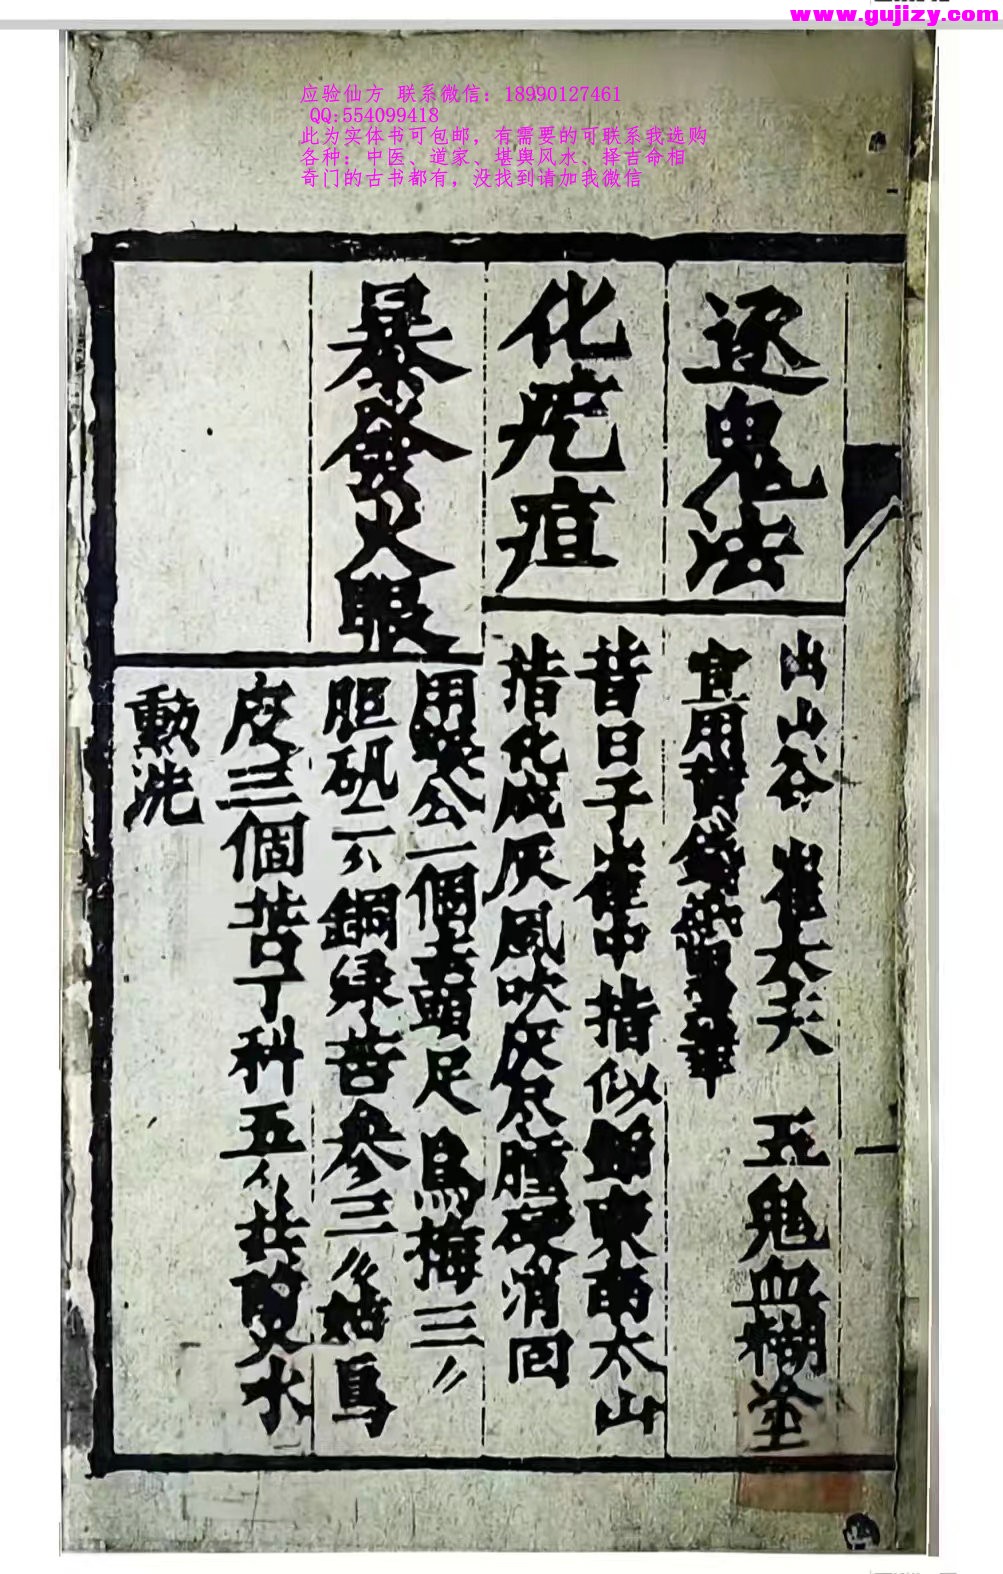 www.gujizy.com
应验仙方 联系微信：18990127461
QQ:554099418
此为实体书可包邮，有需要的可联系我选购
各种：中医、道家、堪舆风水、择吉命相
奇门的古书都有，没找到请加我微信
逐鬼法
出山谷 崔太夫 五鬼血糊塗
宜用黄
化疙疸
昔日子崔中指似 東南太山
指化成灰風吹灰尽腫硬消回
暴發火眼
用 公一個去頭足 烏梅三〃
胆矾二八銅绿苦參三〃 姑鳥
皮三個苦丁科五八共煎水
勲洗